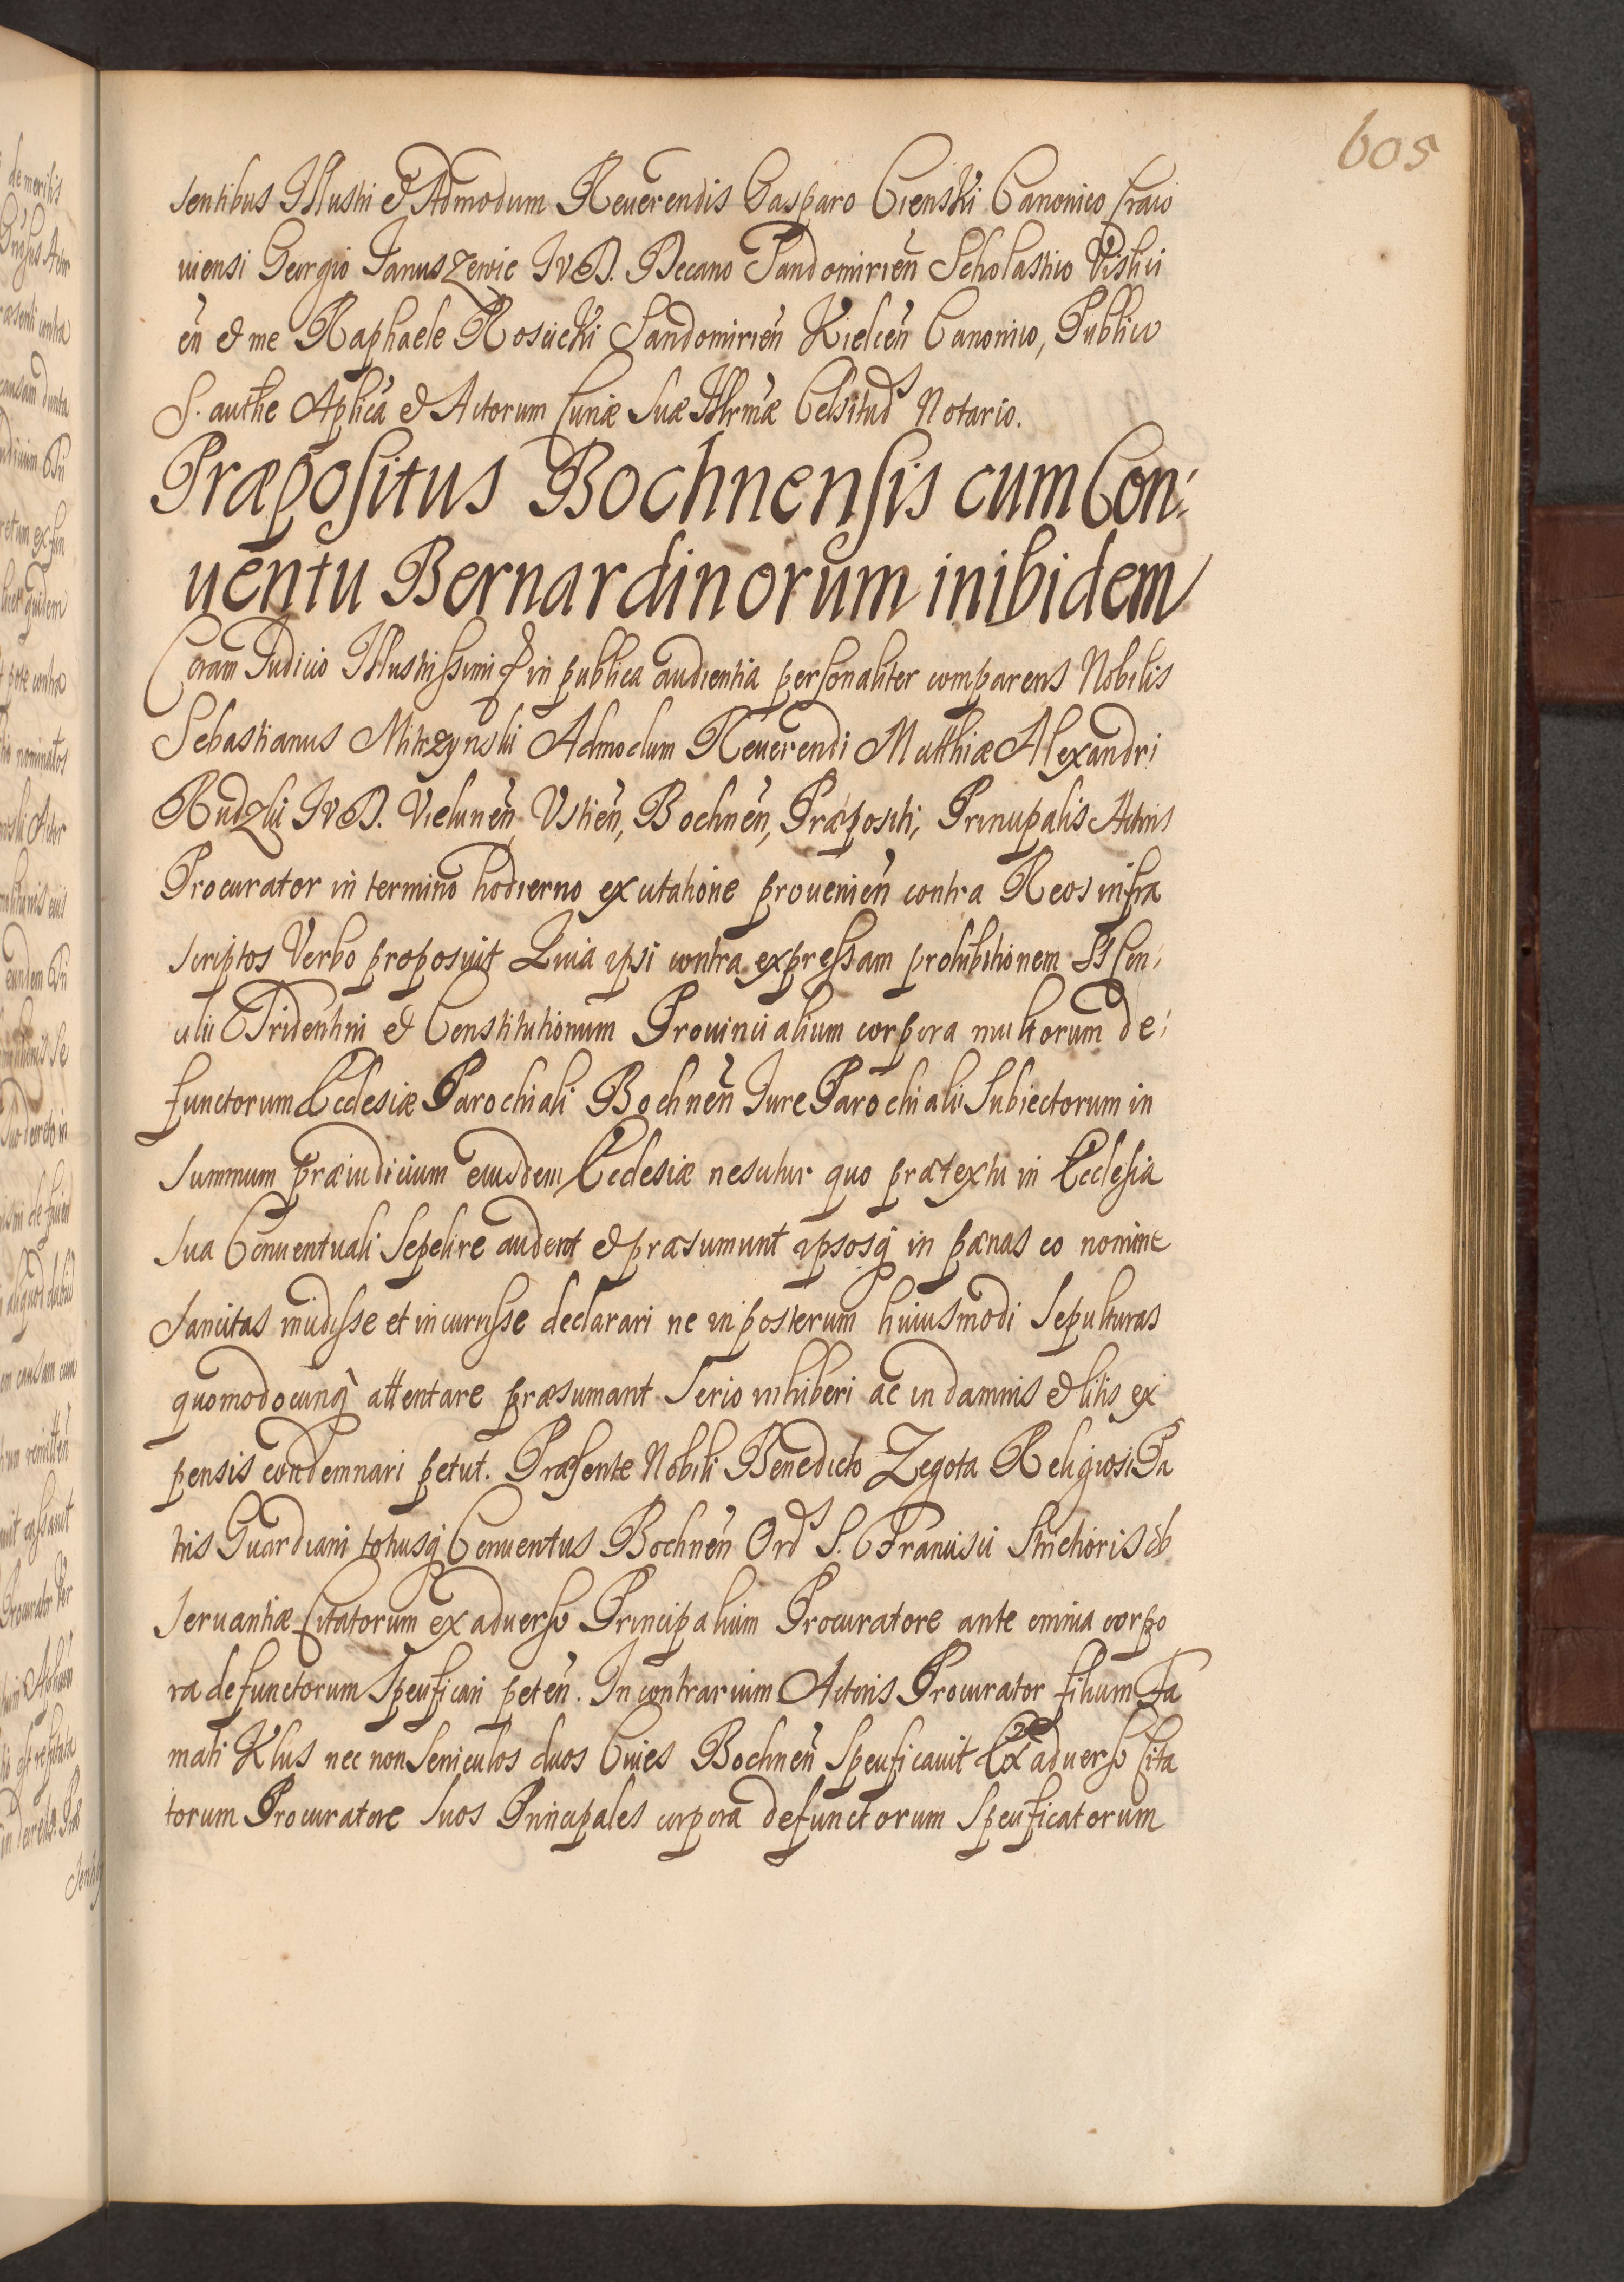 605
sentibus Illustri et Admodum Reuerendis Gasparo Cienski Canonico Craco
uiensi Georgio Januszewic JVD. Decano Sandomirien̄ Scholastico Vislici
en̄ et me Raphaele Rosucki Sandomirien̄ Kielcen̄ Canonico, Publico
S. authe Aplica et Actorum Curiæ Suæ Illrmæ Celsitud Notario.
Præpositus Bochnensis cum Con:
uentu Bernardinorum inibidem
Coram Judicio Illustrissimi et in publica audientia personaliter comparens Nobilis
Sebastianus Mirzynski Admodum Reuerendi Matthiæ Alexandri
Rudzki JVD. Vielunen̄, Ustien̄, Bochnen̄, Præpositi, Principalis Actoris
Procurator in termino hodierno ex citatione prouenien̄ contra Reos infra
scriptos Verbo proposuit Quia ipsi contra expressam prohibitionem SS Con:
cilii Tridentini et Constitutionum Prouincialium corpora multorum de:
functorum Ecclesiæ Parochiali Bochnen̄ Jure Parochiali Subiectorum in
summum præiudicium eiusdem Ecclesiæ nescitur quo prætextu in Ecclesia
sua Conuentuali Sepelire audent et præsumunt ipsosq in pænas eo nomine
sancitas incidisse et incurrisse declarari ne in posterum huiusmodi Sepulturas
quomodocunq attentare præsumant Serio inhiberi ac in damnis et litis ex
pensis condemnari petut. Præsente Nobili Benedicto Zegota Religiosi Pa
tris Guardiani totiusq Conuentus Bochnen̄ Ord S. Francisci Strictioris ob
seruantiæ Citatorum ex aduerso Principalium Procuratore ante omnia corpo
ra defunctorum Specificari peten̄. In contrarium Actoris Procurator filium Fa
mati Klus nec non Seniculos duos Ciues Bochnen̄ Specificauit Ex aduerso Cita
torum Procuratore suos Principales corpora defunctorum Specificatorum